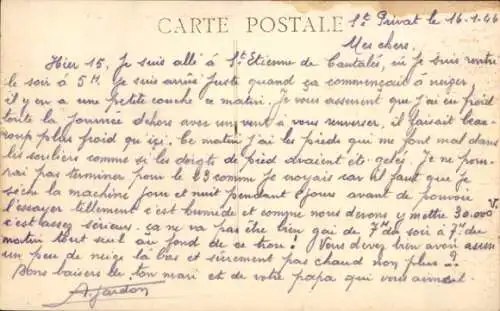 CARTE POSTALE
St Privat le 16.1.46
Mes chers.
Hier 15, je suis allé à St Etienne de Cantalès, où je suis rentré
le soir à 5 H. je suis arrivé juste quand ça commençait à neiger.
il y en a une petite couche ce matin. Je vous assurent que j'ai eu froid
toute la journée dehors avec un vent à vous renverser, il faisait beau-
coup plus froid qu'ici. Ce matin j'ai les pieds qui me font mal dans
les souliers comme si les doigts de pied avaient été gelés. Je ne pour-
rai pas terminer pour le 23 comme je croyais car il faut que je
sèche la machine jour et nuit pendant 6 jours avant de pouvoir
l'essayer tellement c'est humide et comme nous devons y mettre 30.000 V.
c'est assez sérieux. ça ne va pas être bien gai de 7h du soir à 7h du
matin tout seul au fond de ce trou! Vous devez bien avoir aussi
un peu de neige là bas et sûrement pas chaud non plus?
Bons baisers de ton mari et de votre papa qui vous aiment.
A. Jardon